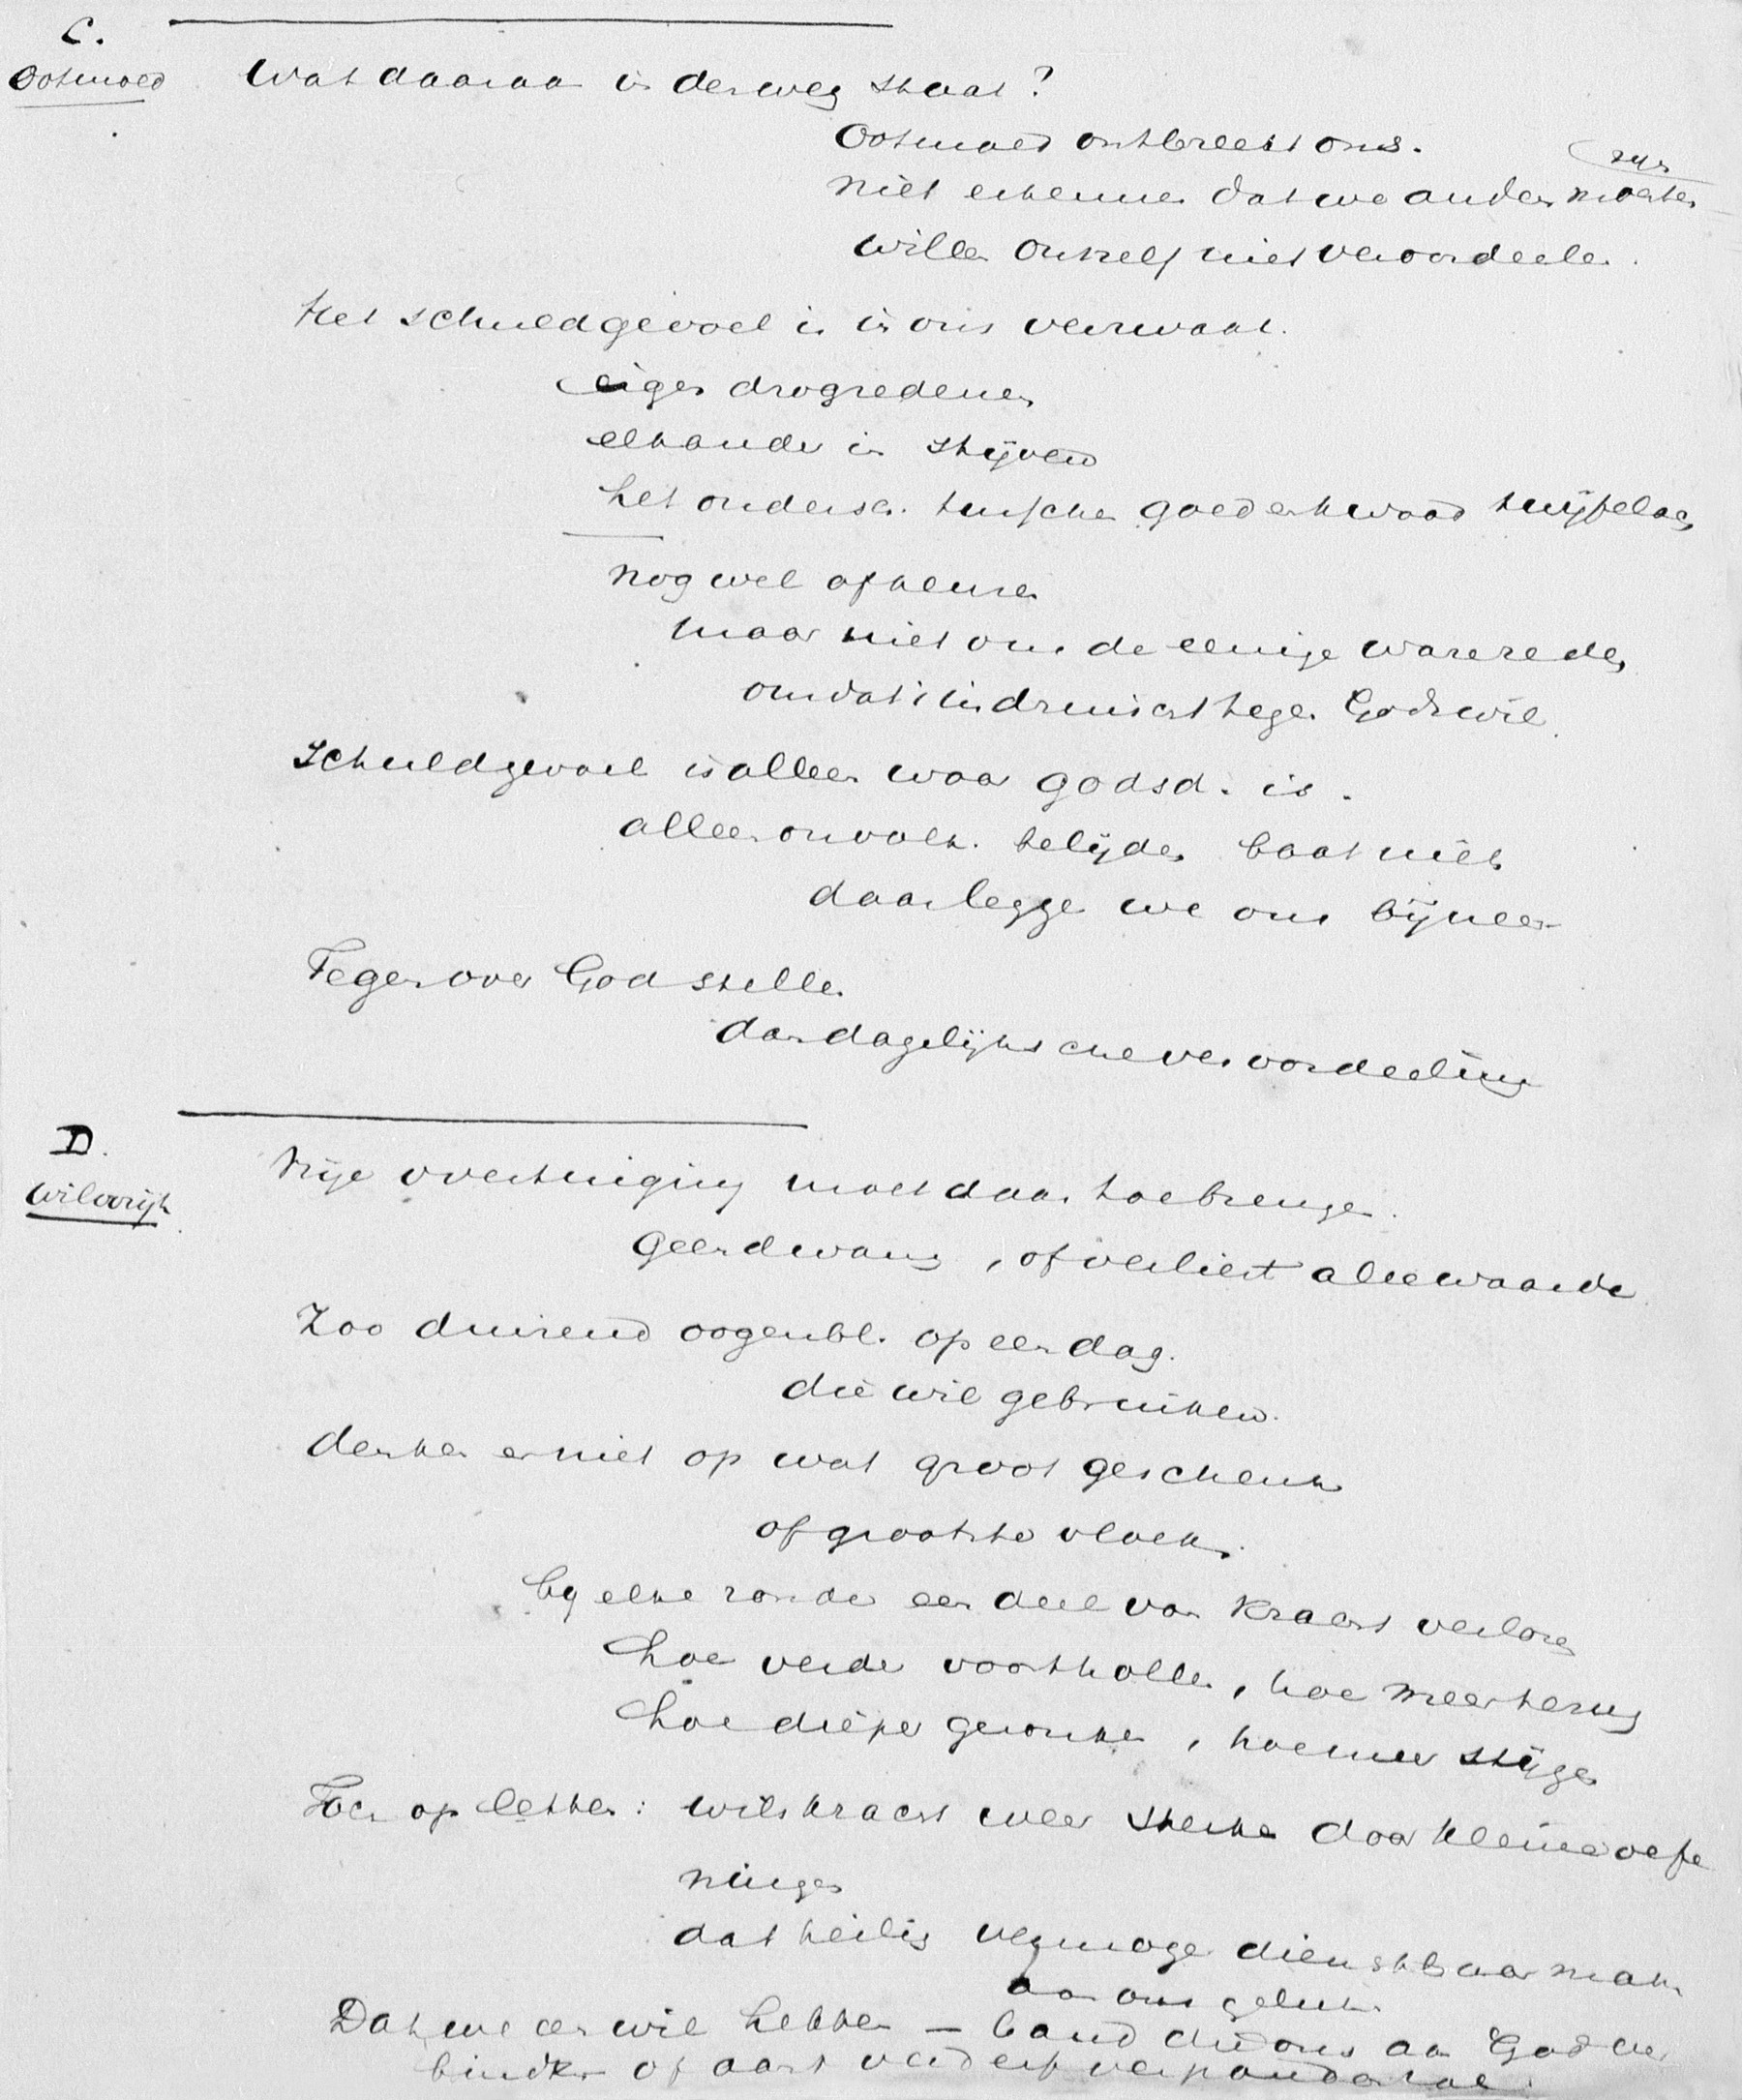 C.
Ootmoed Wat daaraan in den weg staat?
Ootmoed ontbreekt ons.
zijn
niet erkennen dat we anders moesten
willen onszelf niet veroordeelen.
Het schuldgevoel is in ons verzwakt.
eigen drogredenen
elkander in stijven
het ondersch. tusschen goed en kwaad twijfelach
nog wel afkeuren
maar niet om de eenige ware reden
omdat 't indruischt tegen Gods wil.
Schuldgevoel is alleen waar godsd. is.
alleen onvolk. belijden baat niets
daar leggen we ons bij neer
Tegenover God stellen
dan dagelijksche veroordeeling
D.
Wilvrijh Vrije overtuiging moet daar toe brengen.
Geen dwang, of verliest alle waarde
Zoo duizend oogenbl. op een dag.
die wil gebruiken.
denken er niet op wat groot geschenk
of grootste vloek.
bij elke zonde een deel van kracht verloren
hoe verder voorthollen, hoe meer terug
hoe dieper gezonken, hoe meer stijgen
Toen op letten: wilskracht weer sterken door kleine oefe
ningen
dat heilig vermogen dienstbaar maken
aan ons geluk.
Dat we een wil hebben – band die ons aan God ver
binden of aan 't verderf verpanden zal.